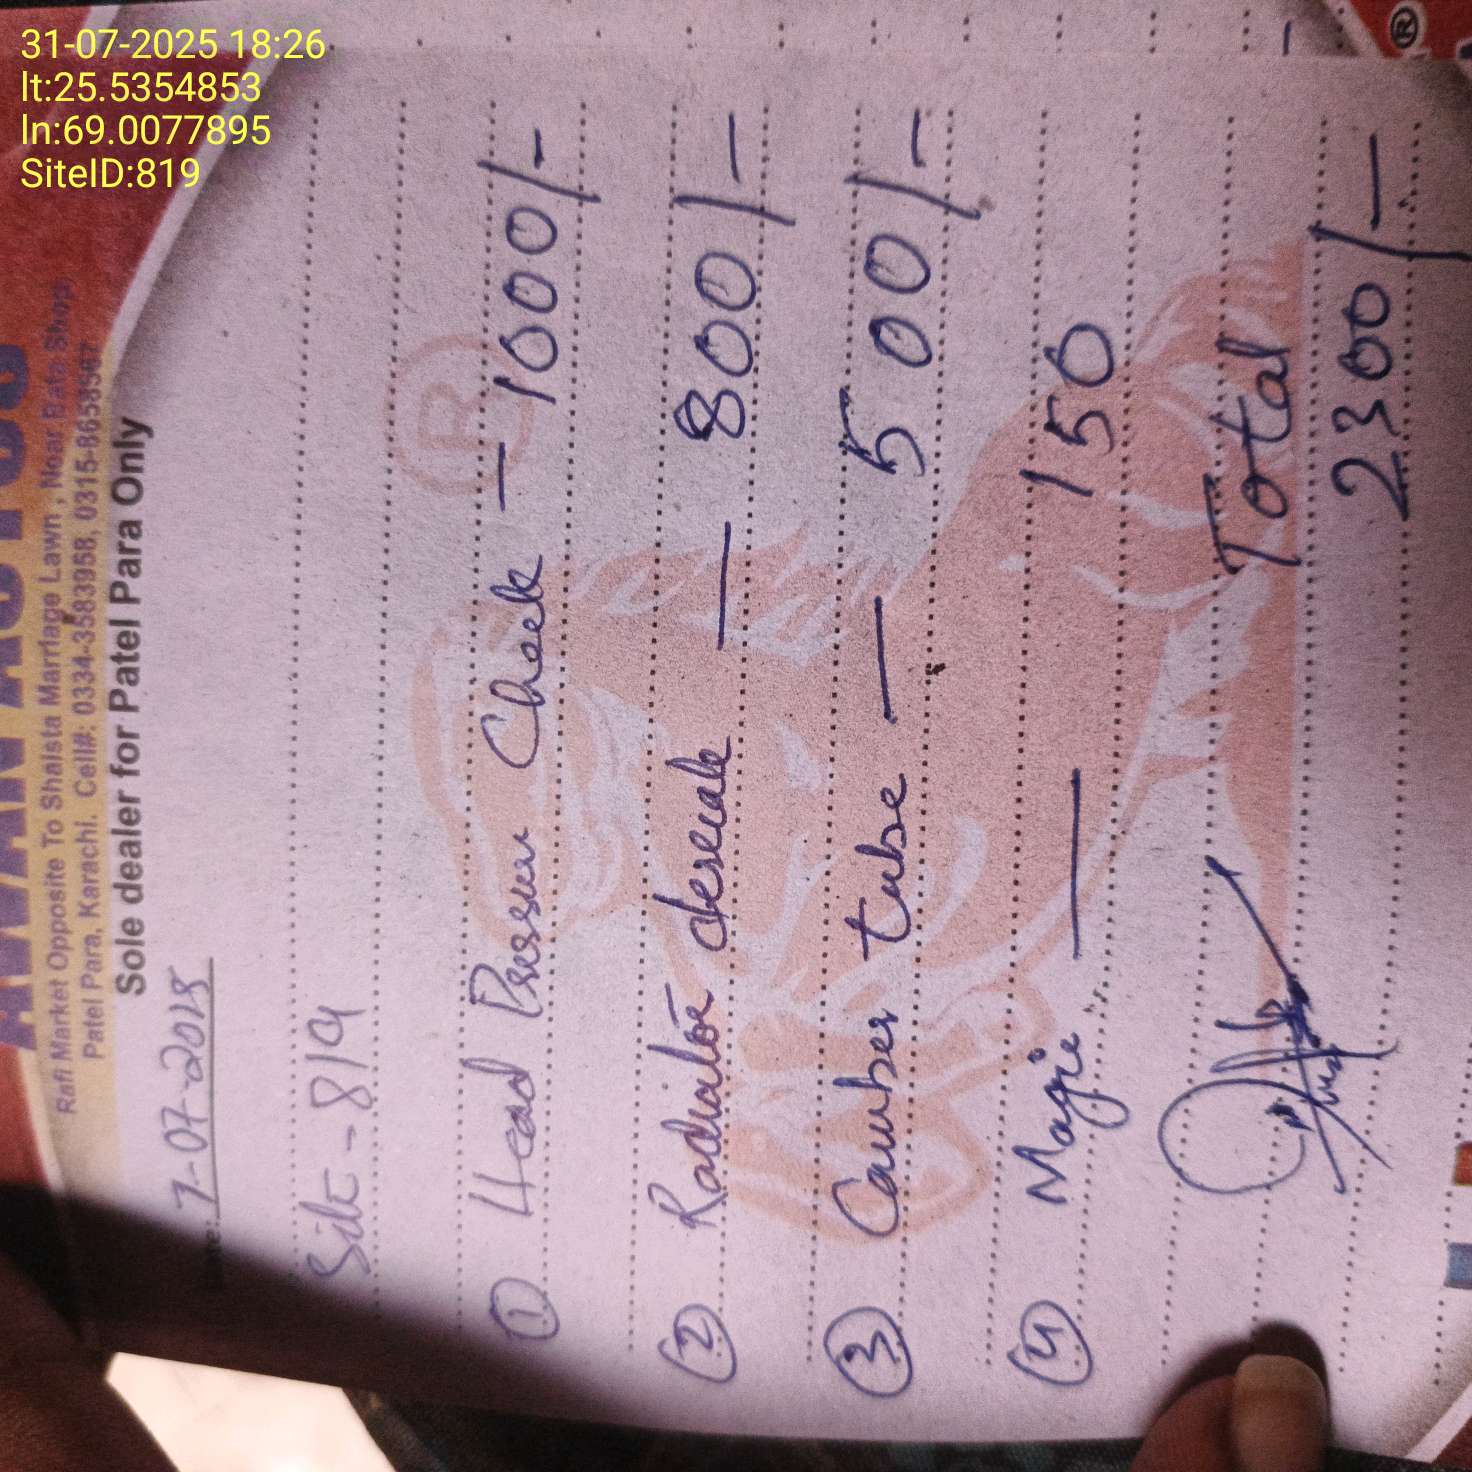 31-07-2025 18:26
lt:25.5354853
ln:69.0077895
SiteID:819
Rafi Market Opposite To Shaista Marriage Lawn, Near Bata Shop
Patel Para, Karachi. Cell#: 0334-3583958, 0315-8658567
Sole dealer for Patel Para Only
7-07-2025
Site-819
1 Head Pressur Check — 1000/-
2 Radiator descale — 800/-
3 Camber tube — 500/-
4 Magic — 150
Total
2300/-